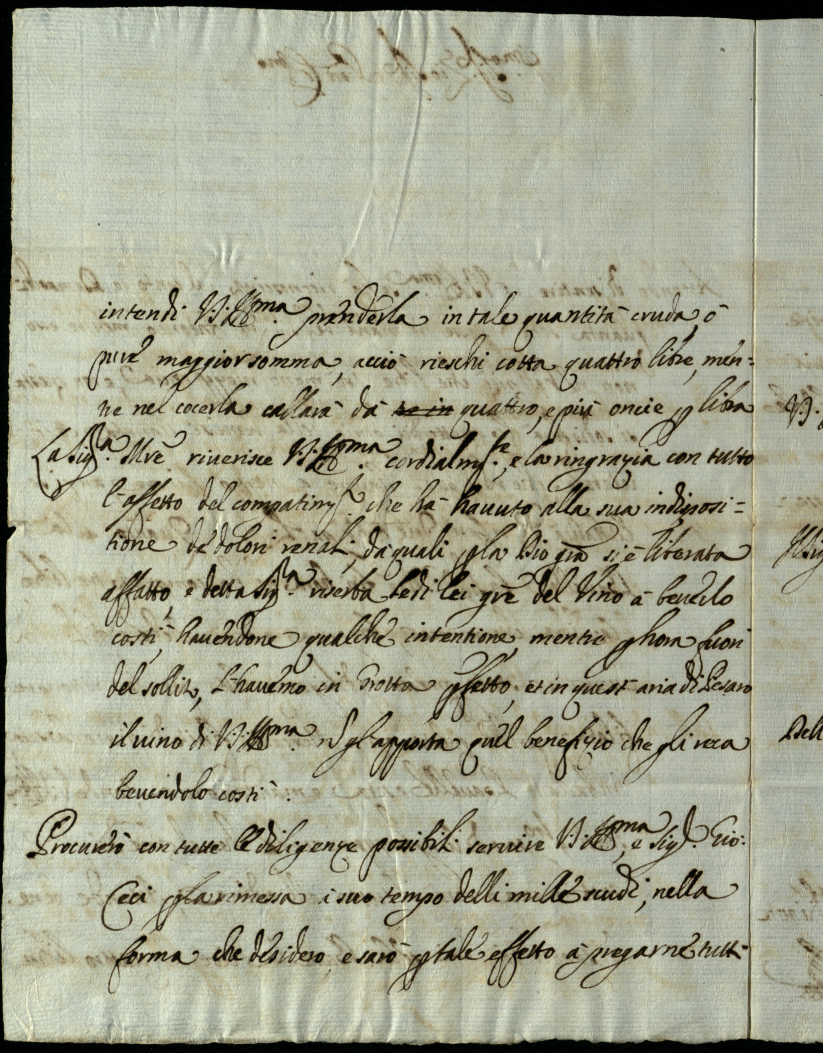 intendi V.S.Ill.ma prenderla in tale quantità cruda, ò
pure maggior somma, acciò rieschi cotta quattro libre, men-
ne nel cocerla callarà da quattro, e più oncie p libra
La Sig.ra M.re riverisce V.S.Ill.ma cordialm.te, e la ringrazia con tutto
l'affetto del compatim.to che hà havuto alla sua indisposi=
tione de dolori renali, da quali p la Dio gra si è liberata
affatto, e detta Sig.ra riserba le di lei gre del Vino à beverlo
costì, havendone qualche intentione, mentre p hora fuori
del sollito, l'havemo in Grotta pfetto, et in quest aria di Pesaro
il vino di V.S.Ill.ma gl'apporta quel benefizio che gli reca
bevendolo costì.
Procurerò con tutte le diligenze possibili servire V.S.Ill.ma, e Sig.r Gio:
Ceci p la rimessa à suo tempo delli mille scudi, nella
forma che desidero, e sarò p tale effetto à pregarne tutti
V.S.
Dell